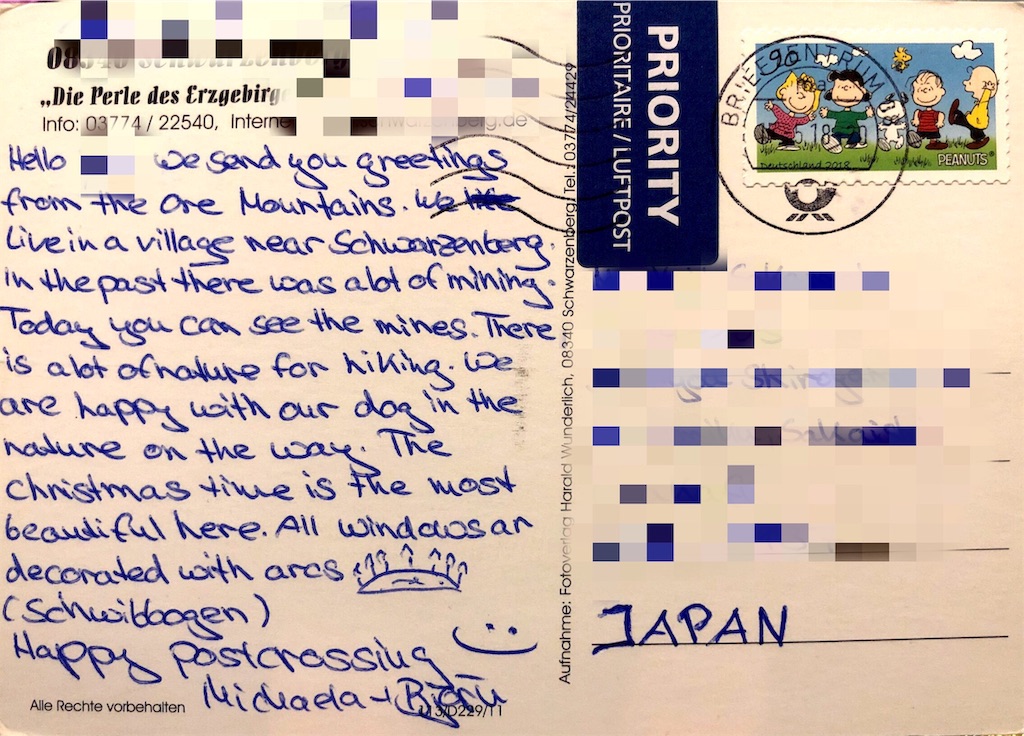 08340 Schwarzenberg
„Die Perle des Erzgebirg
Info: 03774 / 22540, Interne schwarzenberg.de
Hello we send you greetings
from the Ore Mountains. We
Live in a village near Schwarzenberg.
In the past there was a lot of mining.
Today you can see the mines. There
is a lot of nature for hiking. We
are happy with our dog in the
nature on the way. The
christmas time is the most
beautiful here. All windows ar
decorated with arcs
(Schwibbogen)
Happy postcrossing
Michaela + Björn
Alle Rechte vorbehalten
113/D229/11
Aufnahme: Fotoverlag Harald Wunderlich, 08340 Schwarzenberg, Tel. 03774/24429
PRIORITY
PRIORITAIRE / LUFTPOST
BRIEFZENTRUM
95
Deutschland 2018
PEANUTS
JAPAN